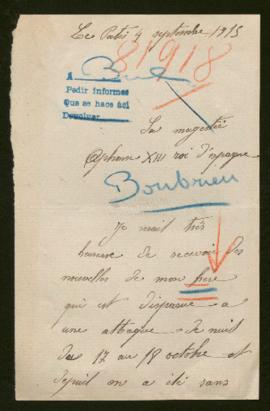 Le Patis 4 septembre 1915
81918
A
Pedir informes
Que se hace así
Devolver
Sa magestée
Alphonse XIII roi d'espagne
Boubrieu
Je serait très
heureuse de recevoir des
nouvelles de mon frère
qui est disparue a
une attaque de nuit
du 17 au 18 octobre et
depuit on a été sans